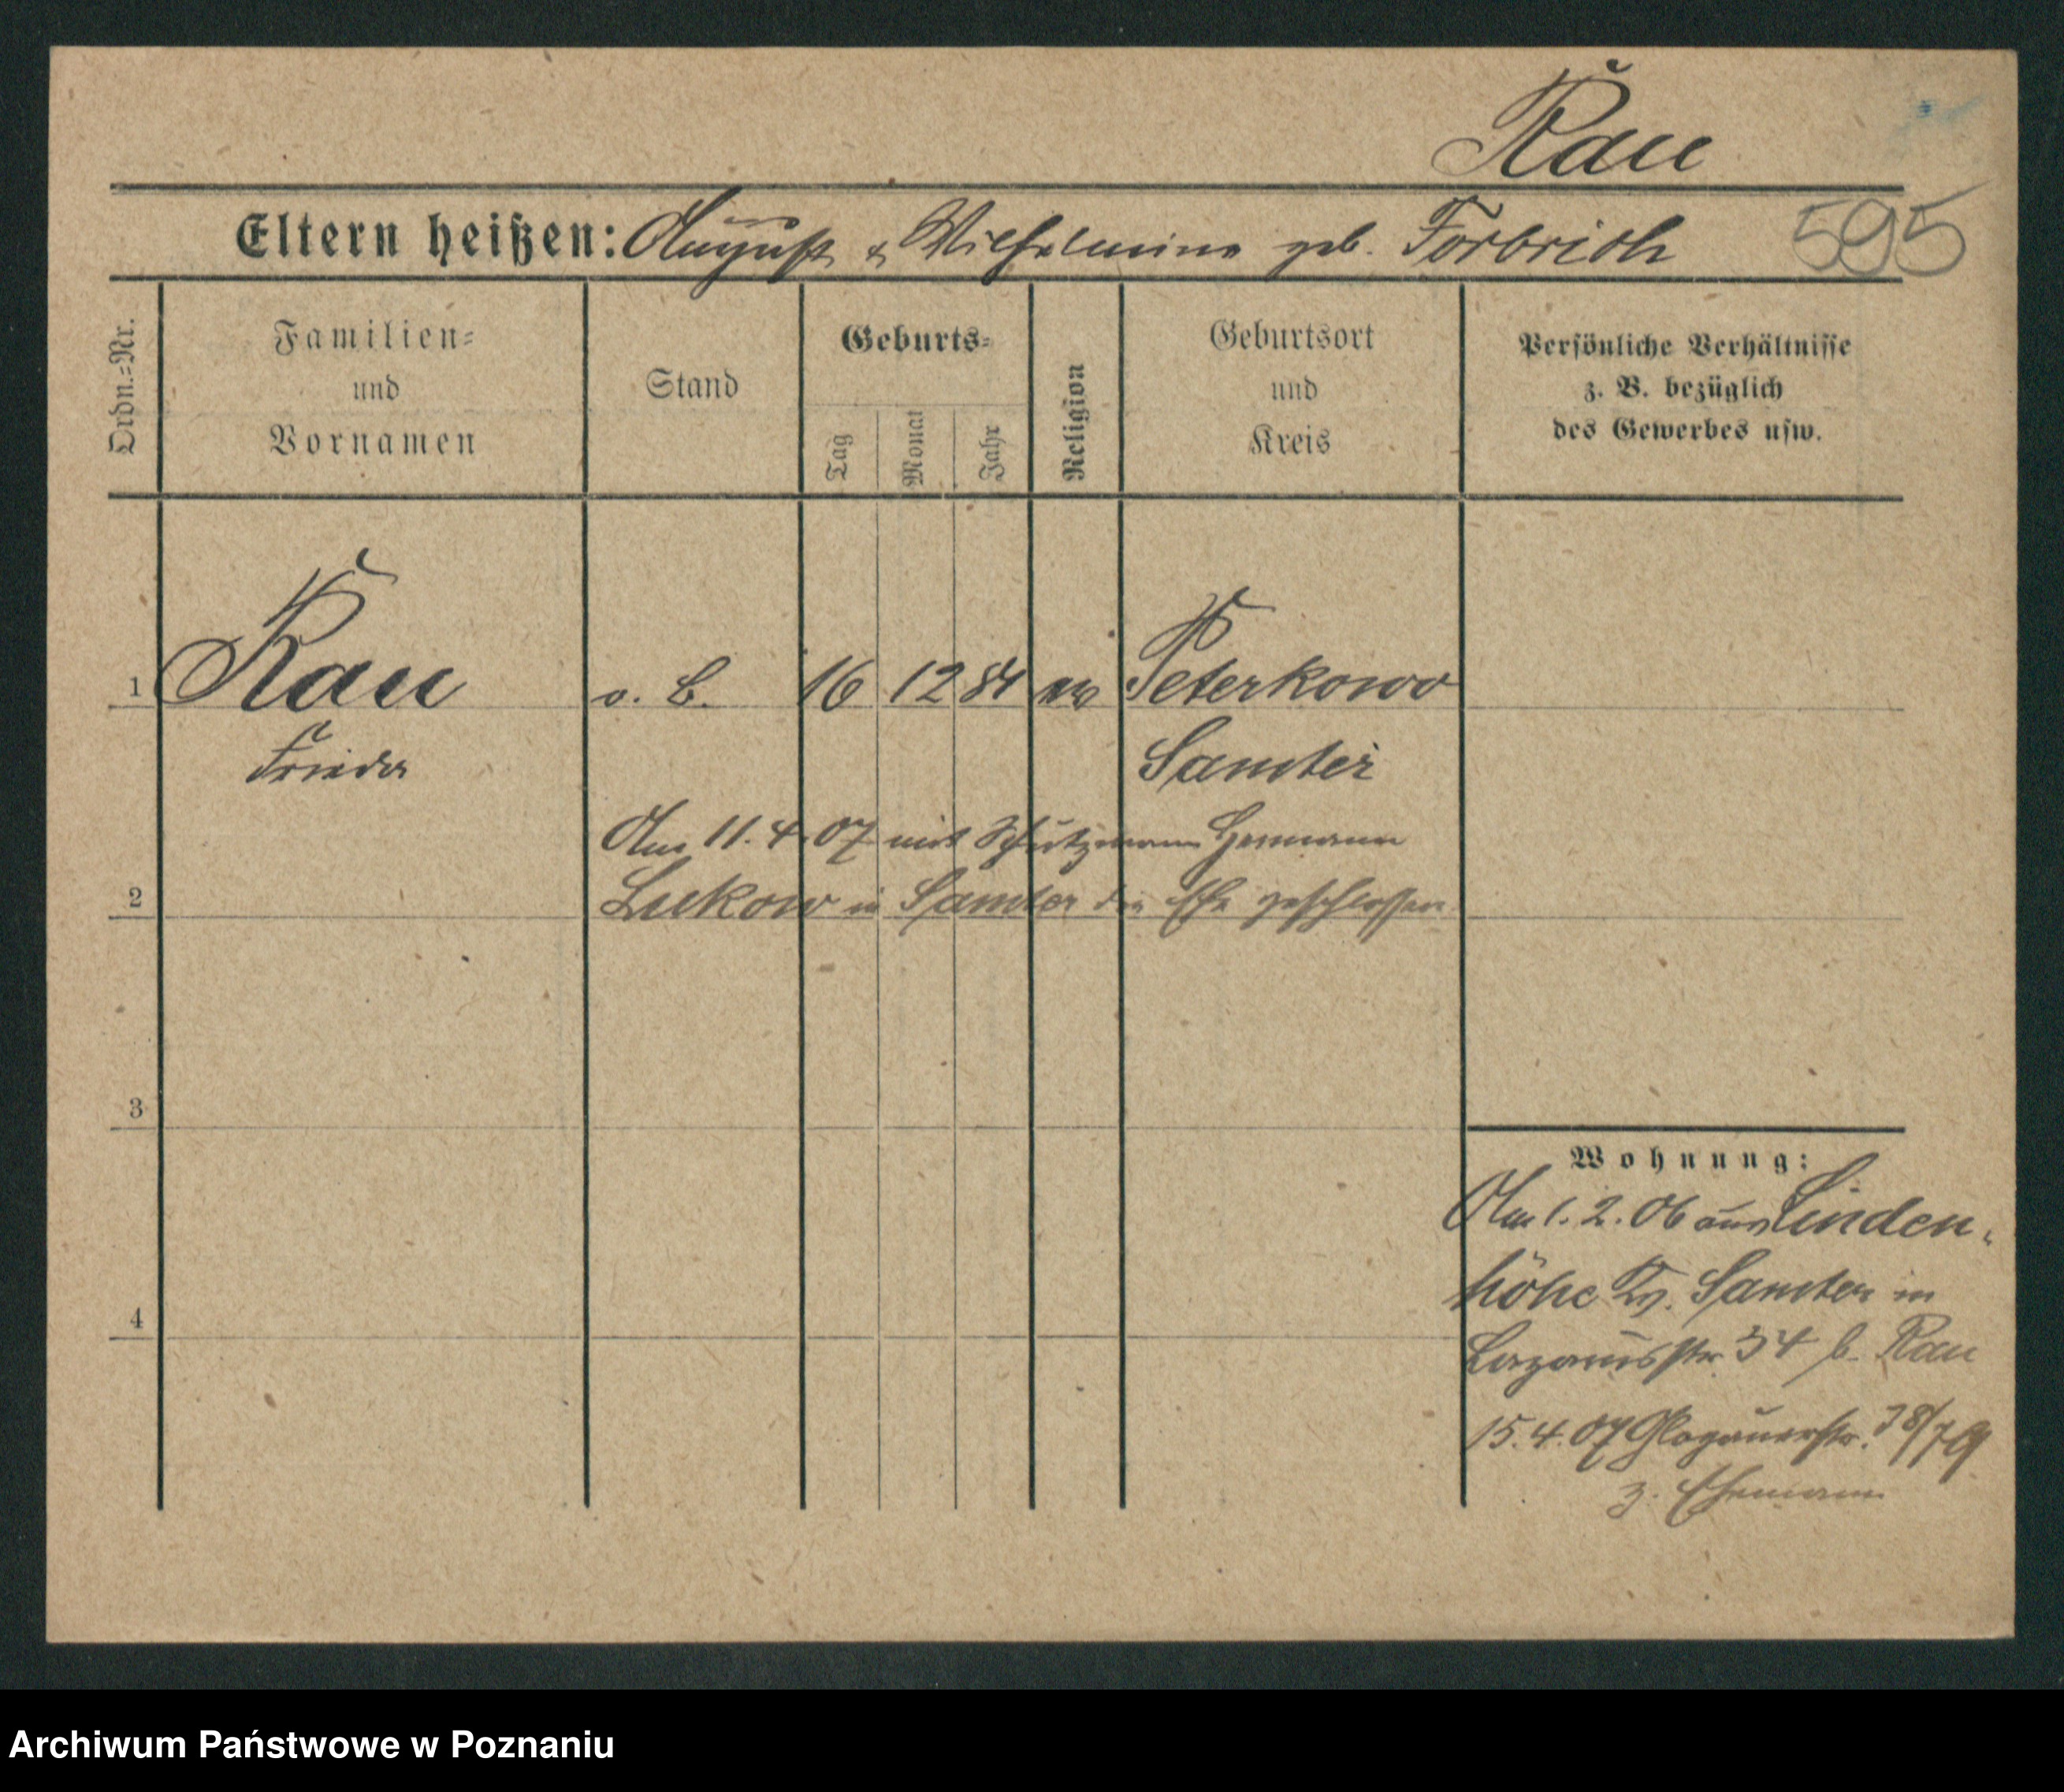 Rau
Eltern heißen: August & Wilhelmine geb. Forbrich 595
Ordn.-Nr.
Familien-
und
Vornamen
Stand
Geburts-
Tag
Monat
Jahr
Religion
Geburtsort
und
Kreis
Persönliche Verhältnisse
z. B. bezüglich
des Gewerbes usw.
1 Rau o. B. 16 12 84 ev Peterkowo
Frieda Samter
Am 11. 4. 07 mit Schutzmann Hermann
2 Lukow in Samter die Ehe geschlossen
3
Wohnung:
Am 1. 2. 06 aus Linden-
höhe Kr. Samter in
4
Lazarusstr. 34 b. Rau
15. 4. 07 Glogauerstr. 78/79
z. Ehemann
Archiwum Państwowe w Poznaniu